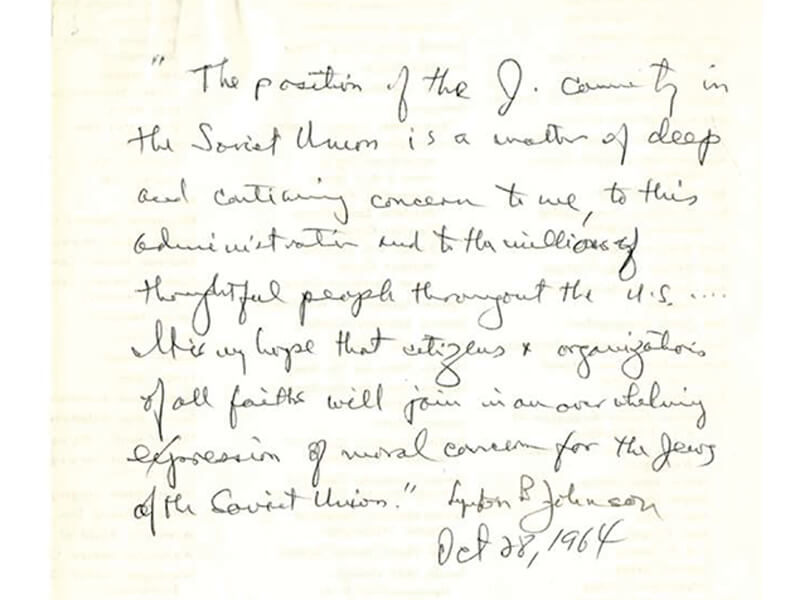 " The position of the J. community in
the Soviet Union is a matter of deep
and continuing concern to me, to this
administration and to the millions of
thoughtful people throughout the U.S. ....
It is my hope that citizens & organizations
of all faiths will join in an overwhelming
expression of moral concern for the Jews
of the Soviet Union." Lyndon B Johnson
Oct 28, 1964